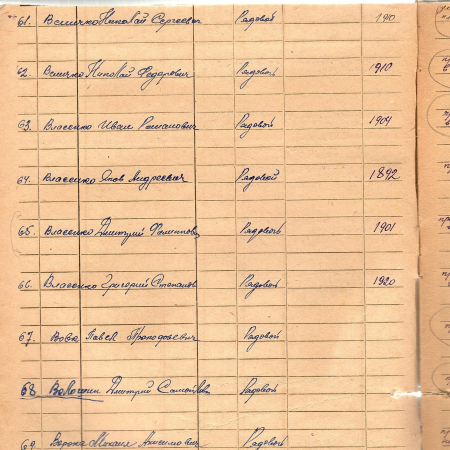 61. Величко Николай Сергеевич Рядовой 1910
62. Величко Николай Федорович Рядовой 1910
63. Власенко Иван Романович Рядовой 1904
64. Власенко Яков Андреевич Рядовой 1892
65. Власенко Дмитрий Филиппов Рядовой 1901
66. Власенко Григорий Степанов Рядовой 1920
67. Вовк Павел Прокофьевич Рядовой
68 Волошин Дмитрий Самойлов Рядовой
69 Ворона Михаил Анисимович Рядовой